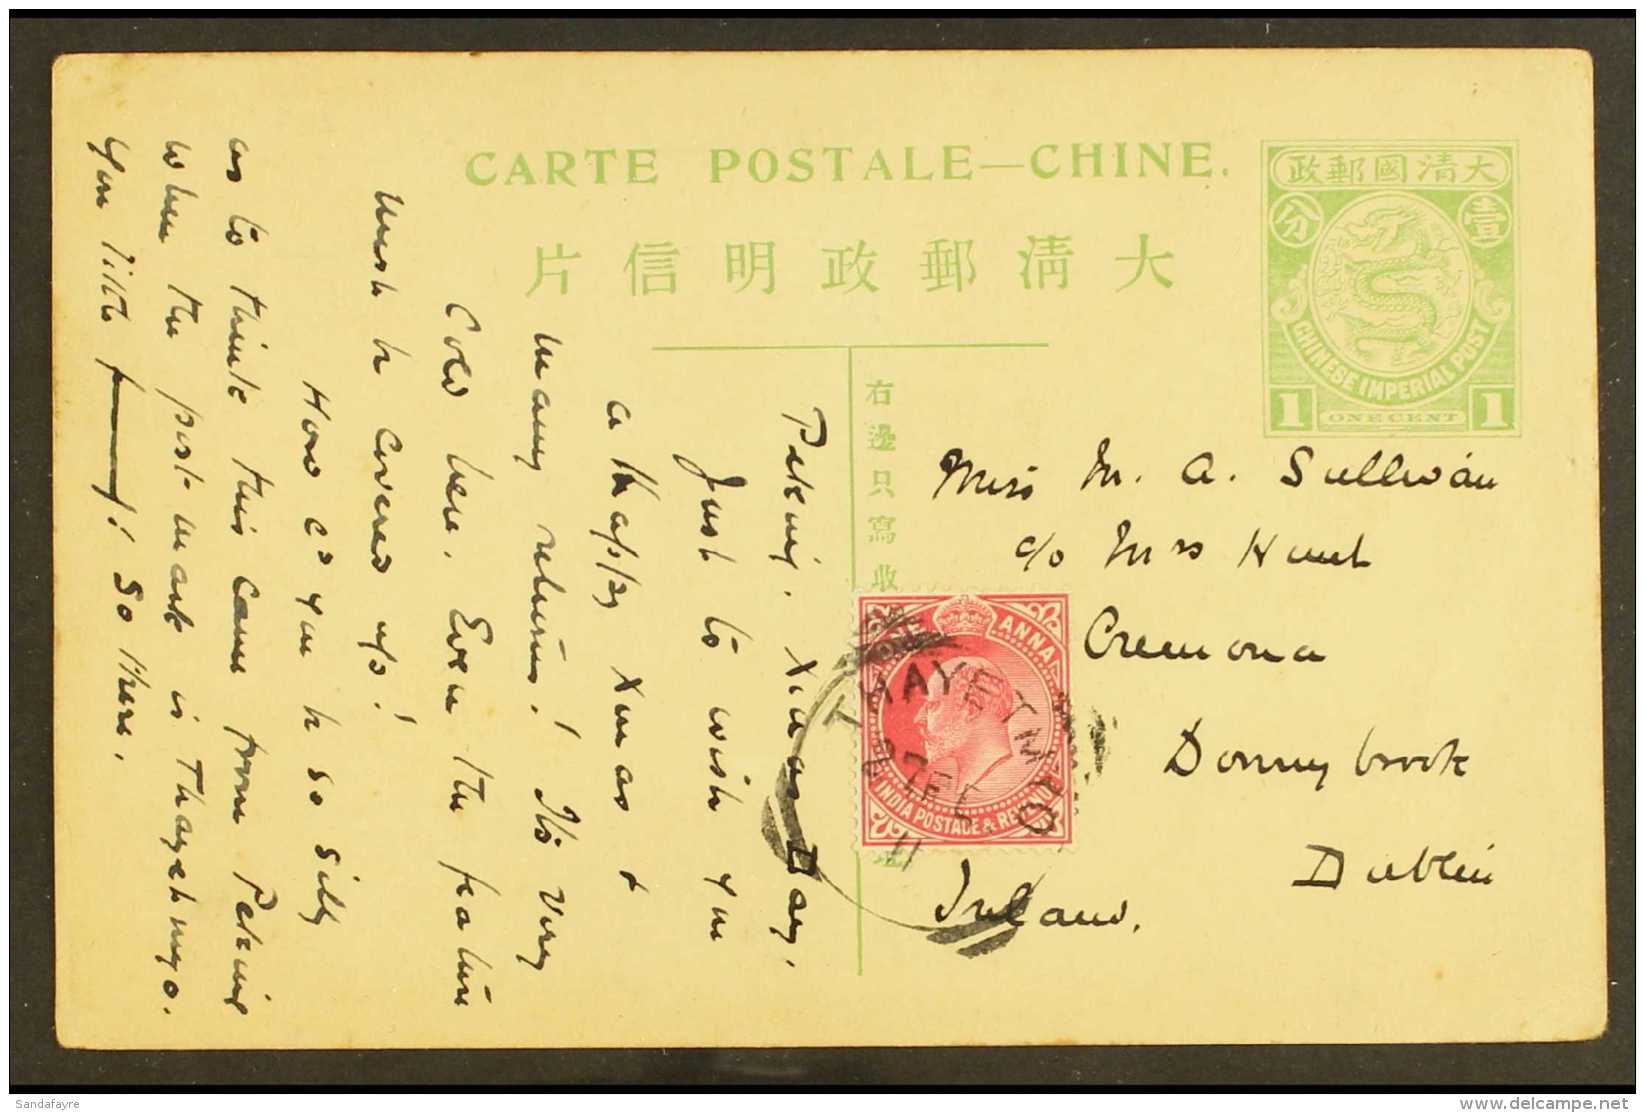 CARTE POSTALE—CHINE.
片信明政郵清大
政郵國清大
分 壹
CHINESE IMPERIAL POST
1 ONE CENT 1
右邊只寫收
Peking. Xmas Day.
Just to wish you
a Happy Xmas &
many returns! It's very
Cold here. Even the feature
must be covered up!
How cd you be so silly
as to think this came from Peking
when the post-mark is Thayetmyo.
You little f——! So there.
Miss M. A. Sullivan
c/o Mrs Hunt
Cremona
Donnybrook
Dublin
Ireland.
ONE ANNA
INDIA POSTAGE & REVENUE
THAYETMYO
27 DE
11
Sandafayre
www.delcampe.net